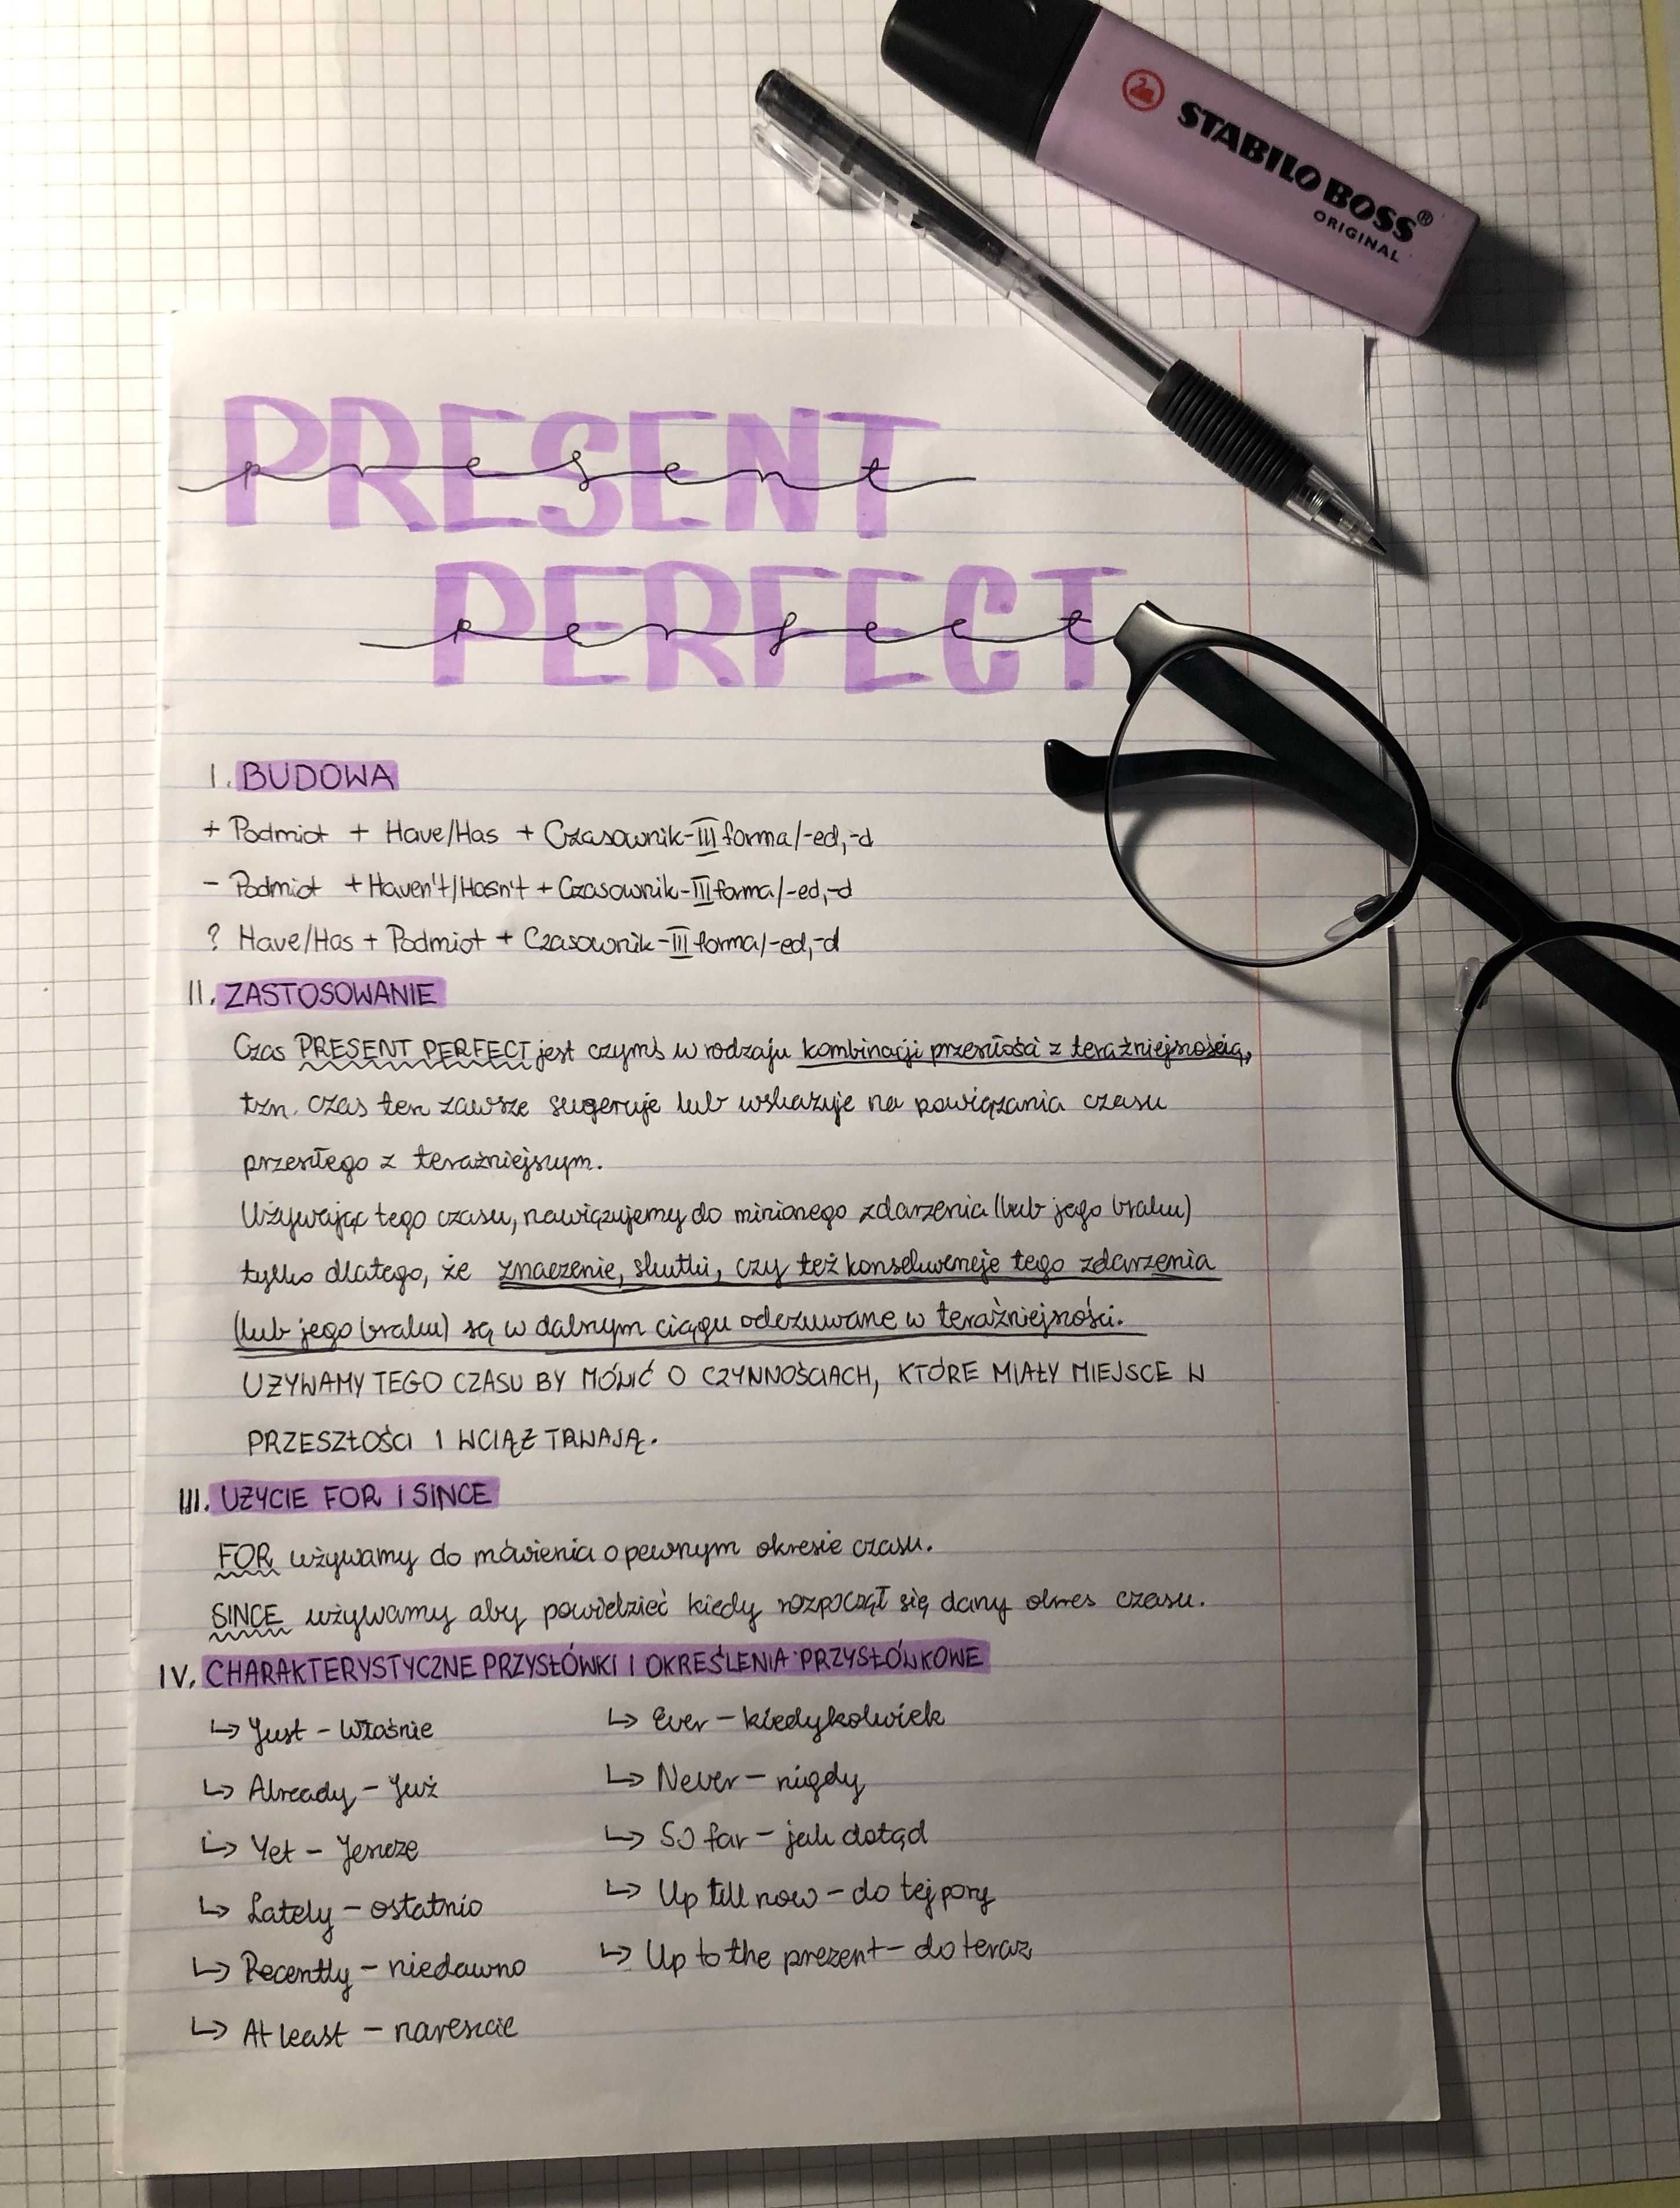 STABILO BOSS®
ORIGINAL
PRESENT
present
PERFECT
perfect
I. BUDOWA
+ Podmiot + Have/Has + Czasownik-III forma/-ed,-d
- Podmiot + Haven't/Hasn't + Czasownik-III forma/-ed,-d
? Have/Has + Podmiot + Czasownik-III forma/-ed,-d
II. ZASTOSOWANIE
Czas PRESENT PERFECT jest czymś w rodzaju kombinacji przeszłości z teraźniejszością,
tzn. czas ten zawsze sugeruje lub wskazuje na powiązania czasu
przeszłego z teraźniejszym.
Używając tego czasu, nawiązujemy do minionego zdarzenia (lub jego braku)
tylko dlatego, że znaczenie, skutki, czy też konsekwencje tego zdarzenia
(lub jego braku) są w dalszym ciągu odczuwane w teraźniejszości.
UŻYWAMY TEGO CZASU BY MÓWIĆ O CZYNNOŚCIACH, KTÓRE MIAŁY MIEJSCE W
PRZESZŁOŚCI I WCIĄŻ TRWAJĄ.
III. UŻYCIE FOR I SINCE
FOR używamy do mówienia o pewnym okresie czasu.
SINCE używamy aby powiedzieć kiedy rozpoczął się dany okres czasu.
IV. CHARAKTERYSTYCZNE PRZYSŁÓWKI I OKREŚLENIA PRZYSŁÓWKOWE
↳ Just - Właśnie
↳ Already - Już
↳ Yet - Jeszcze
↳ Lately - ostatnio
↳ Recently - niedawno
↳ At least - nareszcie
↳ Ever - kiedykolwiek
↳ Never - nigdy
↳ So far - jak dotąd
↳ Up till now - do tej pory
↳ Up to the prezent - do teraz